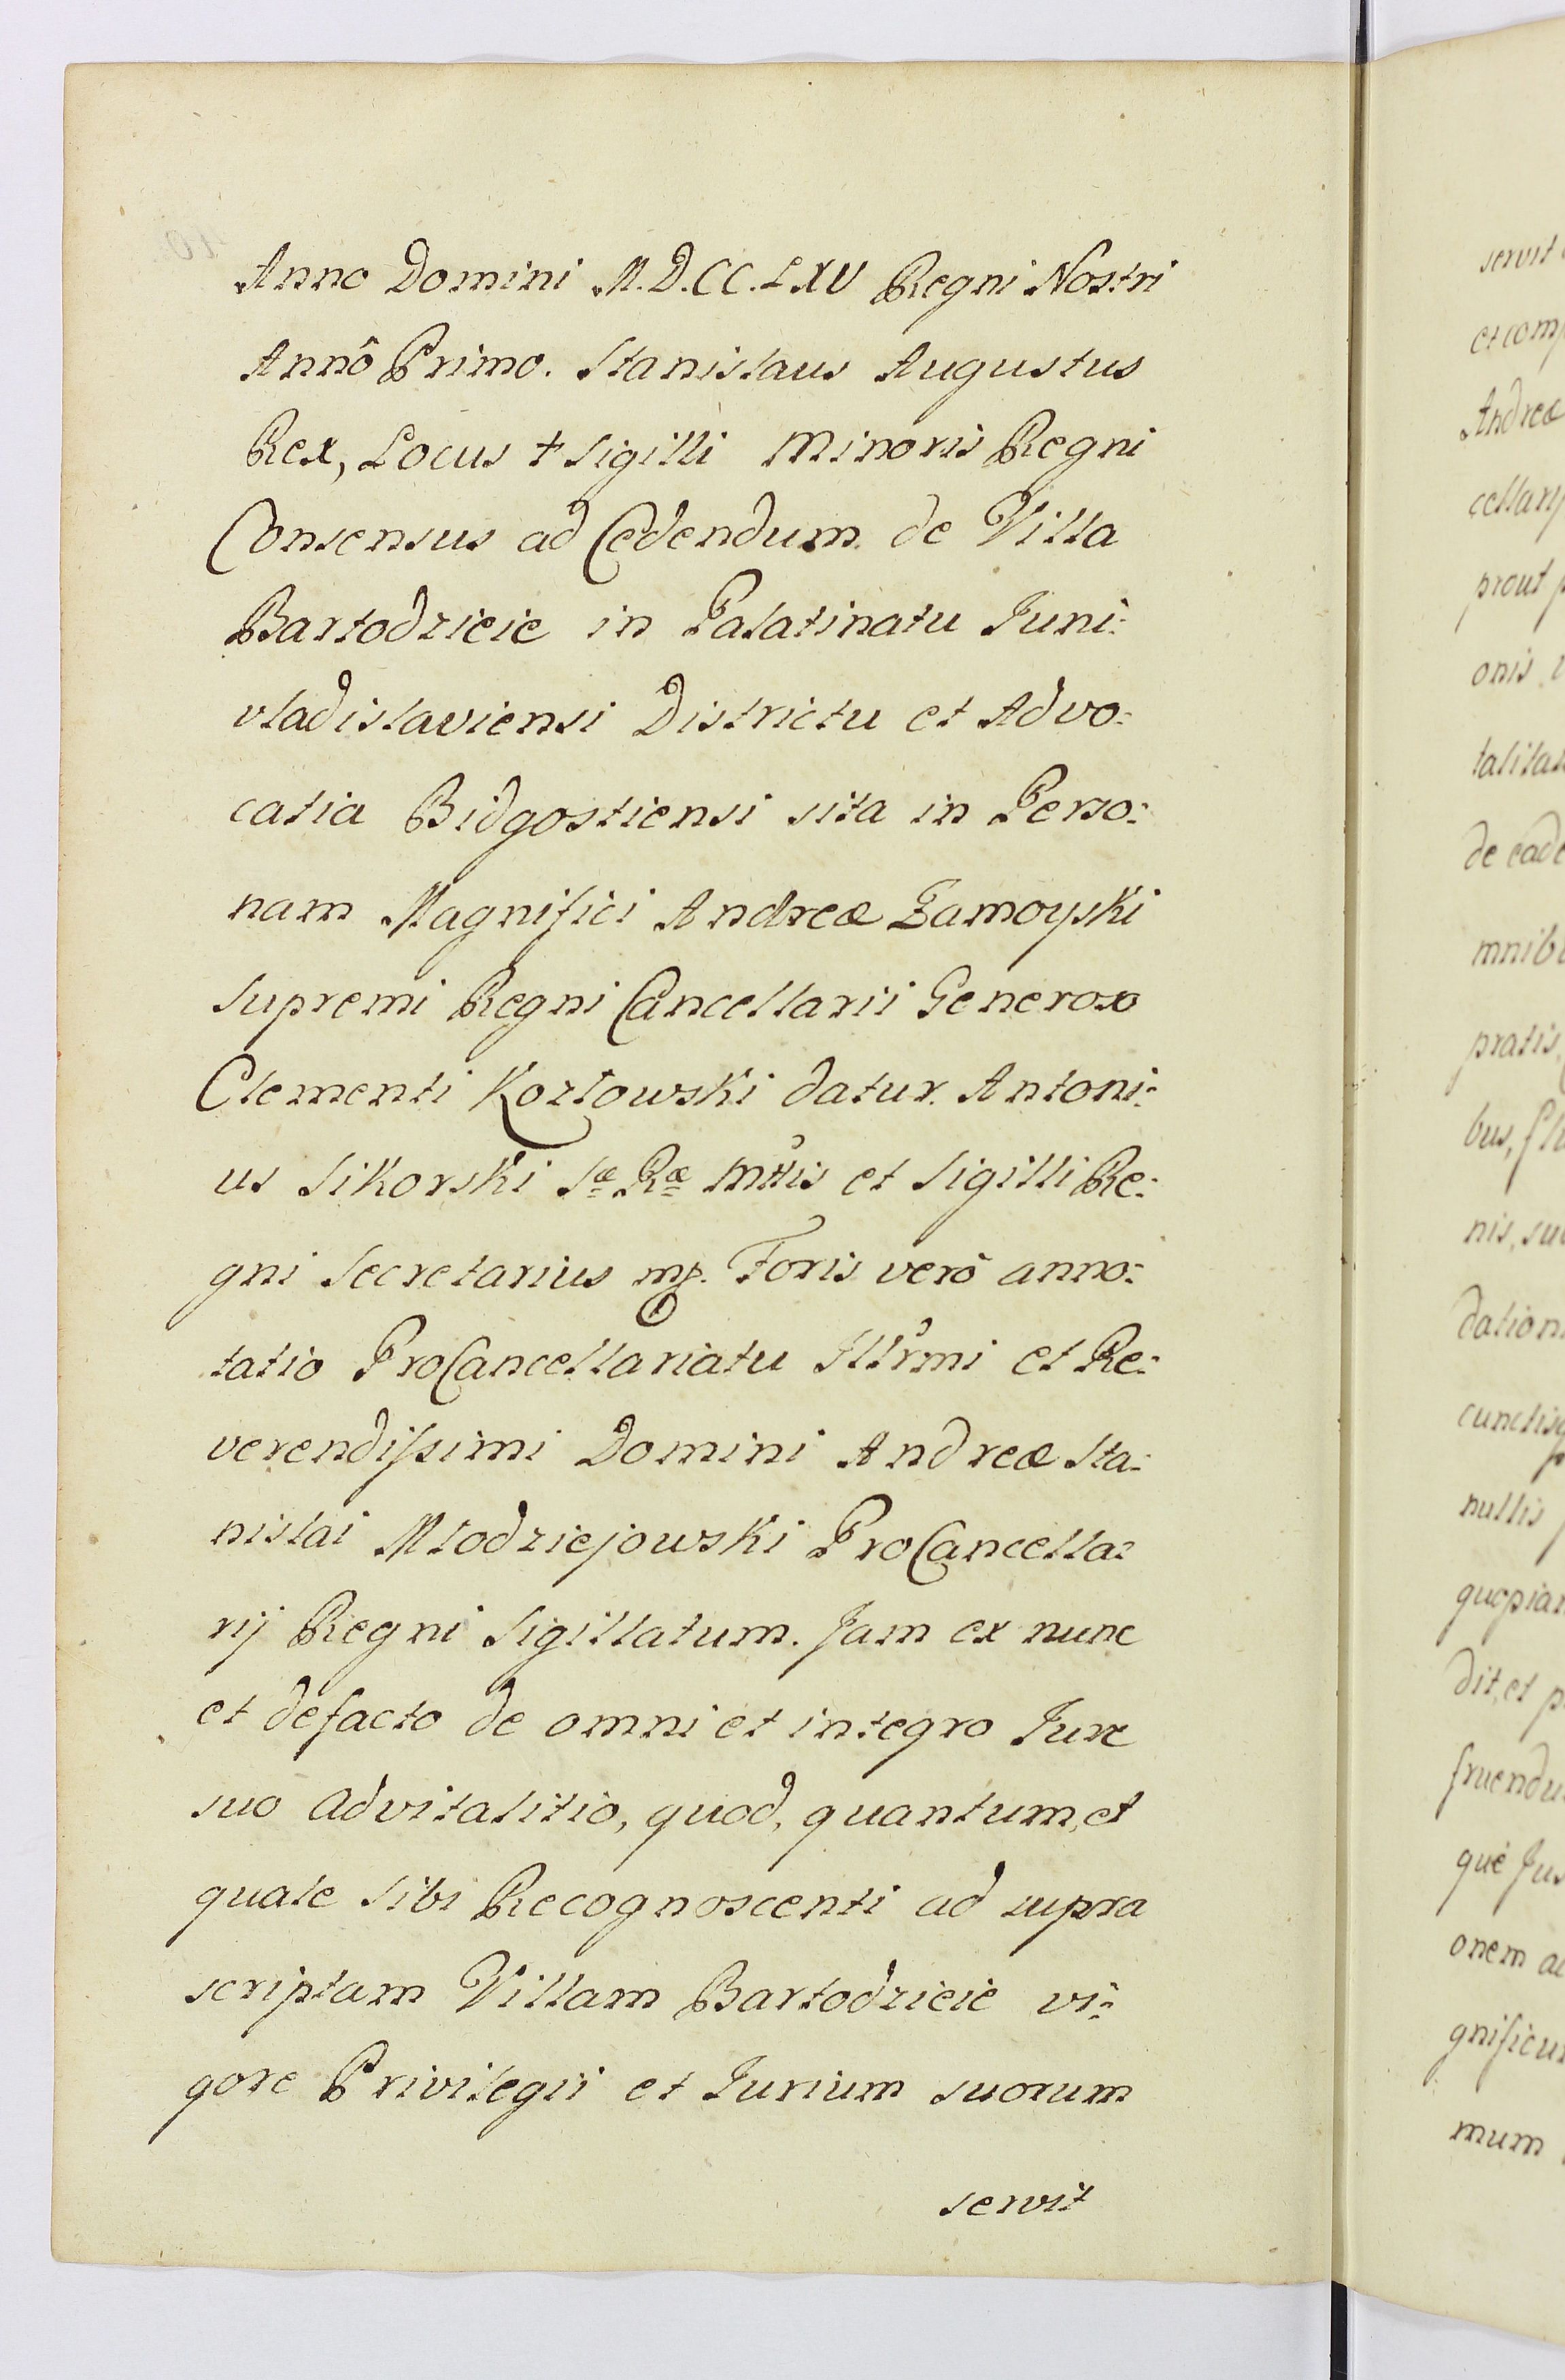 Anno Domini M.D.CC.LXV Regni Nostri
Annô Primo. Stanislaus Augustus
Rex, Locus † Sigilli Minoris Regni
Consensus ad Cedendum de Villa
Bartodzieie in Palatinatu Juni:
vladislaviensi Districtu et Advo:
catia Bidgostiensi sita in Perso:
nam Magnifici Andreæ Zamoyski
Supremi Regni Cancellarii Generoso
Clementi Kozłowski datur. Antoni:
us Sikorski Sæ Ræ Mttis et Sigilli Re:
gni Secretarius mp. Foris verò anno:
tatio ProCancellariatu Illrmi et Re:
verendissimi Domini Andreæ Sta:
nislai Młodziejowski ProCancella:
rij Regni Sigillatum. Jam ex nunc
et defacto de omni et integro Jure
suo advitalitio, quod, quantum, et
quale Sibi Recognoscenti ad supra
scriptam Villam Bartodzieie vi:
gore Privilegii et Jurium suorum
servit
servit
et com
Andreæ
cellarij
prout
onis
talitat
de eade
mnib
pratis,
bus,
nis, su
dation
cunctisq
nullis
quopia
dit, et p
fruendu
què Jus
onem a
gnificu
mum